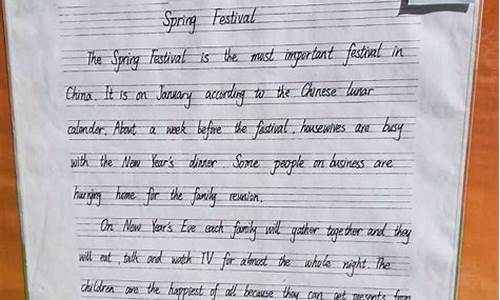 Spring Festival
The Spring Festival is the most important festival in
China. It is on January according to the Chinese lunar
calender. About a week before the festival, housewives are busy
with the New Year's dinner. Some people on business are
hurrying home for the family reunion.
On New Year's Eve each family will gather together and they
will eat, talk and watch TV for almost the whole night. The
children are the happiest of all because they can get presents from